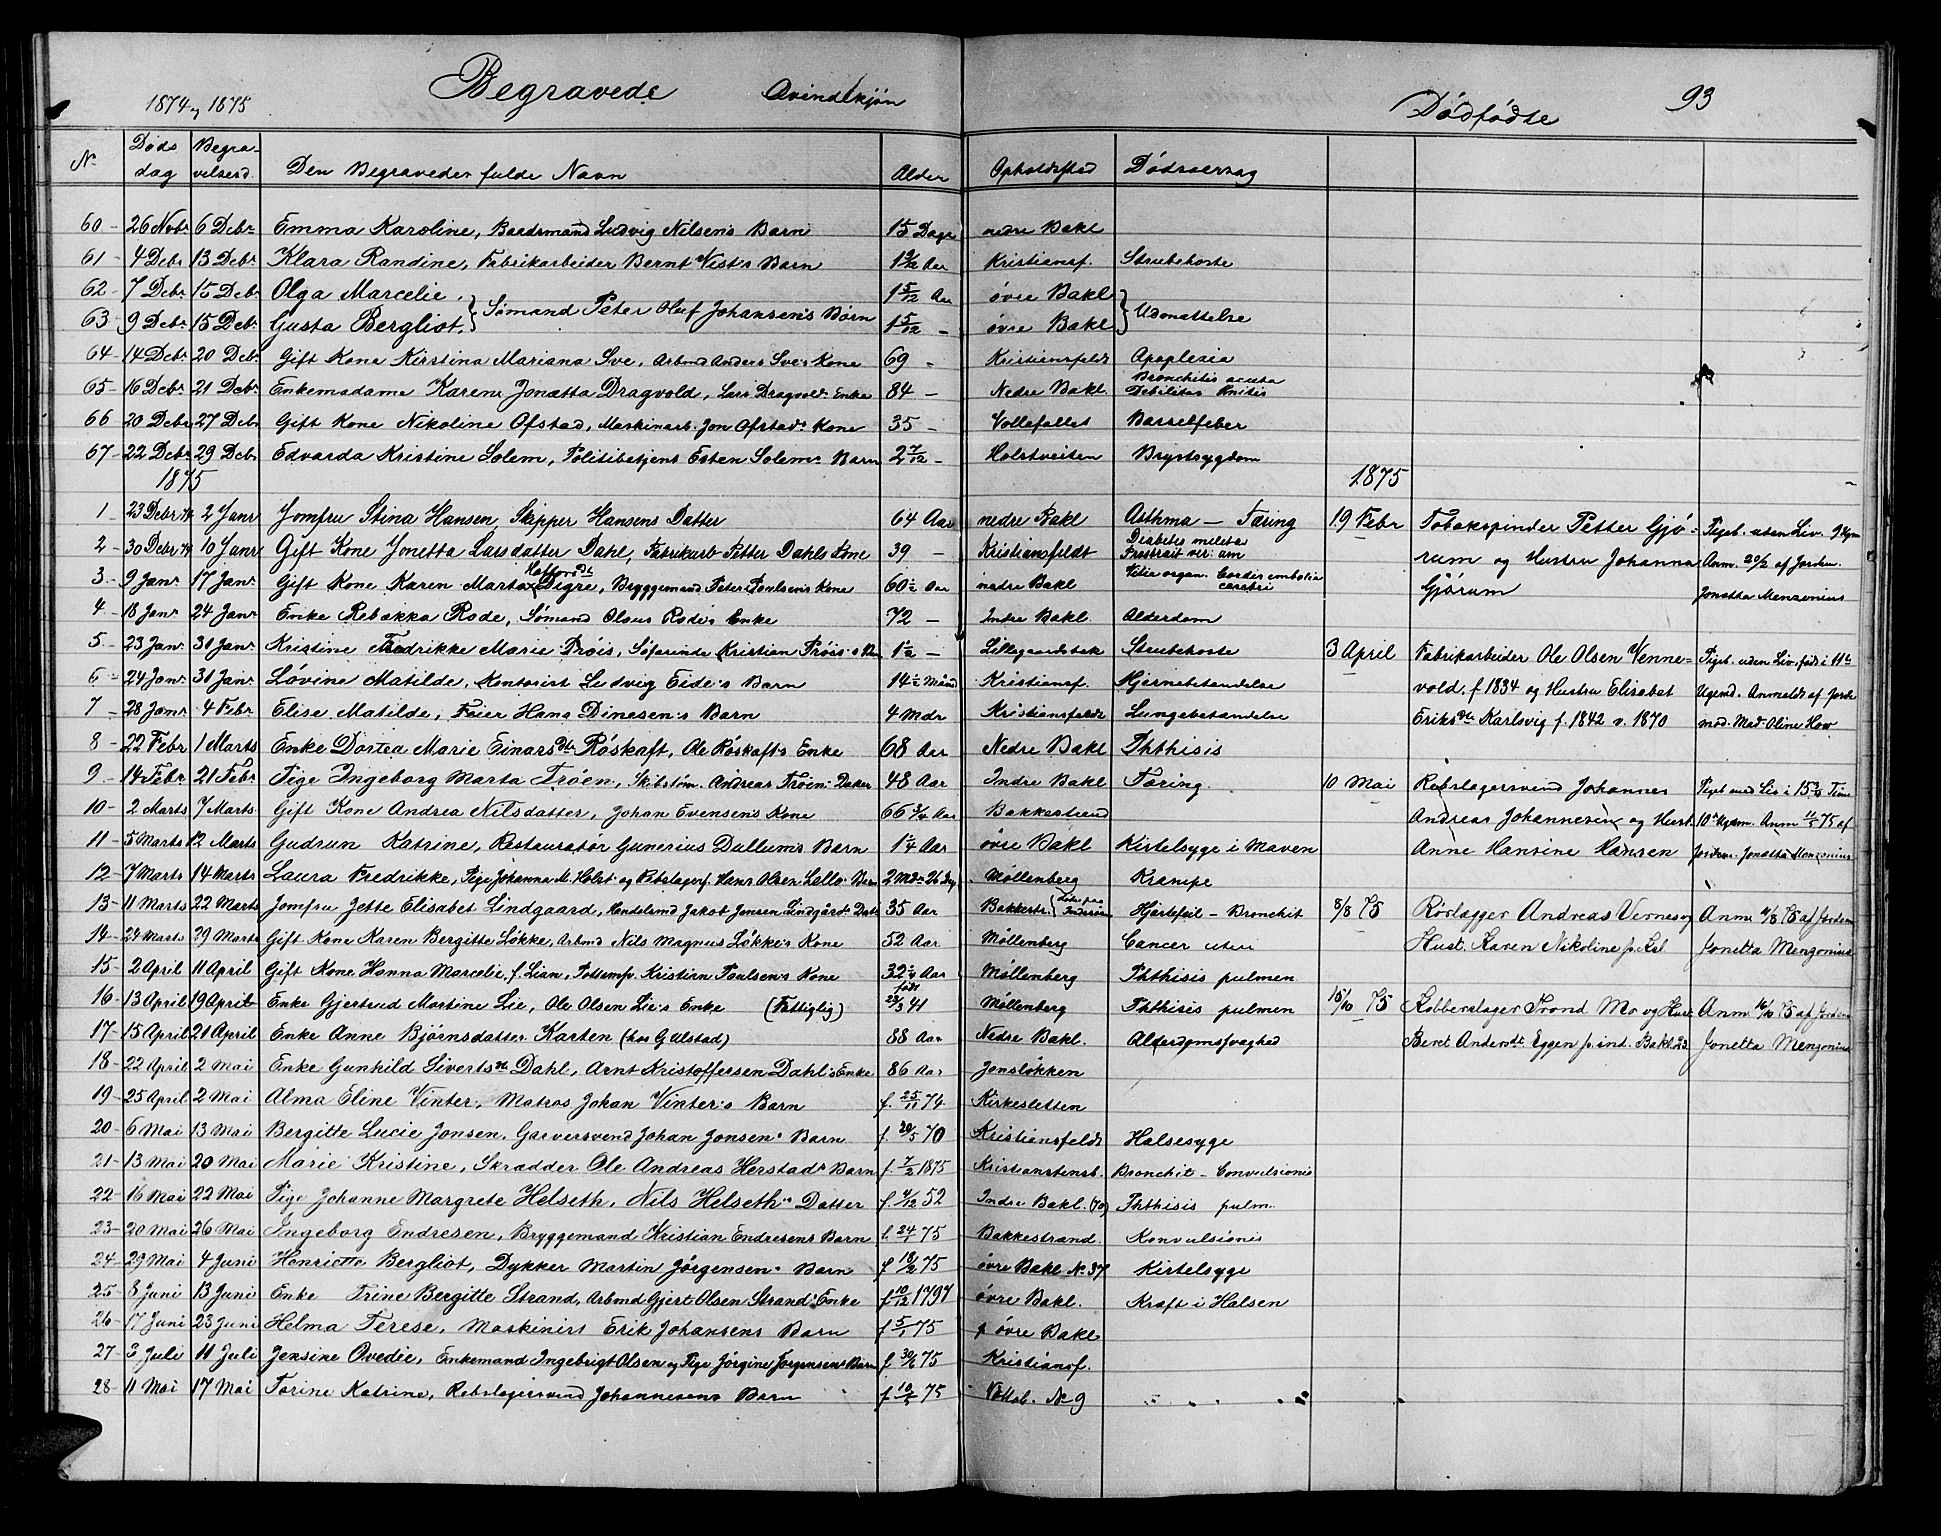 1874 og 1875 Begravede Qvindekjøn Dødfødte 93
No Døds dag Begravelsesd. Den Begravedes fulde Navn Alder Opholdssted Dødsaarsag
60 - 26 Novbr 6 Debr Emma Karoline, Baadsmand Ludvig Nilsen's Barn 15 Dage nedre Bakl
61 - 4 Debr 13 Debr Klara Randine, Fabrikarbeider Bernt Vist's Barn Aar Kristiansf. Strubehoste
62 - 7 Debr 15 Debr Olga Marcelie. 1 5/12 Aar øvre Bakl
63 - 9 Debr 15 Debr Gusta Bergliot. } Sømand Peter Oluf Johansen's Børn 1 5/12 - øvre Bakl } Udmattelse
64 - 14 Debr 20 Debr Gift Kone Kirstina Mariana Sve, Arbmd Anders Sve's Kone 69 - Kristiansfeldt Apoplexia
65 - 16 Debr 21 Debr Enkemadame Karen Jonetta Dragvold, Lars Dragvold's Enke 84 - Nedre Bakl. Bronchitis acuta Debilitas
66 20 Debr 27 Debr Gift Kone Nikoline Ofstad, Maskinarb. Jon Ofstad's Kone 35 - Vollefallet Barselfeber
67 - 22 Debr 29 Debr Edvarda Kristine Solem, Politibetjent Esten Solem's Barn 2 7/12 - Holstveiten Brystsygdom
1875 1875
1 - 23 Debr 74 2 Janr Jomfru Stina Hansen, Skipper Hansens Datter 64 Aar nedre Bakl Asthma - Tæring 19 Febr Tobakspinder Petter Gjø- Pigeb. uden Liv.
2 - 30 Debr 74 10 Janr Gift Kone Jonetta Larsdatter Dahl, Fabrikarb Petter Dahls Kone 39 - Kristiansfeldt Diabetes melitus rum og Hustru Johanna Anm. 20/2 af Jordm.
3 - 9 Janr 17 Janr Gift Kone Karen Marta Digre, Bryggemand Peter Poulsen's Kone 60 1/2 Aar nedre Bakl Vitia organ. Cordis embolia cerebri Gjørum Jonetta Menzonius
4 - 18 Janr 24 Janr Enke Rebekka Rode, Sømand Olaus Rode's Enke 72 - Indre Bakl. Alderdom
5 - 23 Janr 31 Janr Kristine Fredrikke Marie Prøis, Søfarende Kristian Prøis's Bn 1 1/2 - Lillegaardsbak Strubehoste 3 April Fabrikarbeider Ole Olsen Venne- Pigeb. uden Liv født i 11te
6 - 24 Janr 31 Janr Lovine Matilde, Kontorist Ludvig Eide's Barn 14 1/2 Måned Kristiansf. Hjernebetændelse vold. f 1834 og Hustru Elisabet Ugend. Anmeldt af Jorde
7 - 28 Janr 4 Febr Elise Matilde, Feier Hans Dinesen's Barn 4 Mdr Kristiansfeldt Lungebetændelse Eriksdtr Karlsvig f. 1842 v. 1870 mod. Mad. Oline How
8 - 22 Febr 1 Marts Enke Dortea Marie Einarsdtr Røskaft, Ole Røskaft's Enke 68 Aar Nedre Bakl Phthisis
9 - 14 Febr 21 Febr Pige Ingeborg Marta Trøen, Skibstøm. Andreas Trøen's Datter 48 Aar Indre Bakl Tæring. 10 Mai Rebslagersvend Johannes Pigeb med Liv i
10 - 2 Marts 7 Marts Gift Kone Andrea Nilsdatter, Johan Evensen's Kone 66 3/4 Aar Bakkestrand Andreas Johannesen og Hust. Anm 11/5 75 af
11 - 5 Marts 12 Marts Gudrun Katrine, Restauratør Gunerius Dullum's Barn 1 1/4 Aar øvre Bakl Kirtelsyge i Maven Anne Hansine Hansen Jordm. Jonetta Menzonius
12 - 7 Marts 14 Marts Laura Fredrikke, Pige Johanna M. Holst og Rebslagerf. Hans Olsen Lello's Barn 2 Mdr 26 Dag Møllenberg Krampe
13 - 11 Marts 22 Marts Jomfru Jette Elisabet Lindgaard, Handelsmd Jakob Jensen Lindgård's Datt 35 Aar Bakkestr. Hjertefeil - Bronchit 8/8 75 Rørlægger Andreas Vernes og Anm /8 75 af Jordem
14 - 24 Marts 29 Marts Gift Kone Karen Bergitte Løkke, Arbmd Nils Magnus Løkke's Kone 52 Aar Møllenberg Cancer uteri Hust. Karen Nikoline Jonetta Menzonius
15 - 2 April 11 April Gift Kone Hanna Marcelie, f. Lian, Pottemf. Kristian Poulsen's Kone 32 1/4 Aar Møllenberg Phthisis pulmon
16 - 13 April 19 April Enke Gjertrud Martine Lie, Ole Olsen Lie's Enke (Fattiglig) født 23/3 41 Møllenberg Phthisis pulmon 15/10 75 Kobberslager Trond Mo og Hust. Anm 16/10 75 af Jordem
17 - 15 April 21 April Enke Anne Bjørnsdatter Karten (hos Gulstad) 88 Aar Nedre Bakl. Alderdomssvaghed Beret Andersdt Eggen p. ind. Bakl. 23 Jonetta Menzonius
18 - 22 April 2 Mai Enke Gunhild Sivertsdt Dahl, Arnt Kristoffersen Dahl's Enke 86 Aar Jonsløkken
19 - 25 April 2 Mai Alma Eline Vinter, Matros Johan Vinter's Barn f. 25/11 74 Kirkesletten
20 - 6 Mai 13 Mai Bergitte Lucie Jonsen, Garversvend Johan Jonsen's Barn f. 20/5 70 Kristiansfeldt Halsesyge
21 - 13 Mai 20 Mai Marie Kristine, Skrædder Ole Andreas Herstad's Barn f. 7/2 1875 Kristianstensb. Bronchit - Convulsionis
22 - 16 Mai 22 Mai Pige Johanne Margrete Helseth, Nils Helseth's Datter f. 4/12 52 Indre Bakl. (70) Phthisis pulm.
23 - 20 Mai 26 Mai Ingeborg Endresen, Bryggemand Kristian Endresens Barn f. 24/1 75 Bakkestrand. Konvulsionis
24 - 29 Mai 4 Juni Henriette Bergliot, Dykker Martin Jørgensen's Barn f 18/2 75 øvre Bakl No 37 Kirtelsyge
25 - 8 Juni 13 Juni Enke Trine Bergitte Strand, Arbmd Gjert Olsen Strand's Enke f. 10/12 1797 øvre Bakl. Kræft i Halsen
26 - 17 Juni 23 Juni Helma Terese, Maskinist Erik Johansens Barn f 5/1 75 p øvre Bakl
27 - 3 Juli 11 Juli Jensine Ovedie, Enkemand Ingebrigt Olsen og Pige Jørgine Jørgensens Barn f 30/6 75 Kristiansf.
28 - 11 Mai 17 Mai Tarine Katrine, Rebslagersvend Johannesens Barn f. 10/5 75 No 9